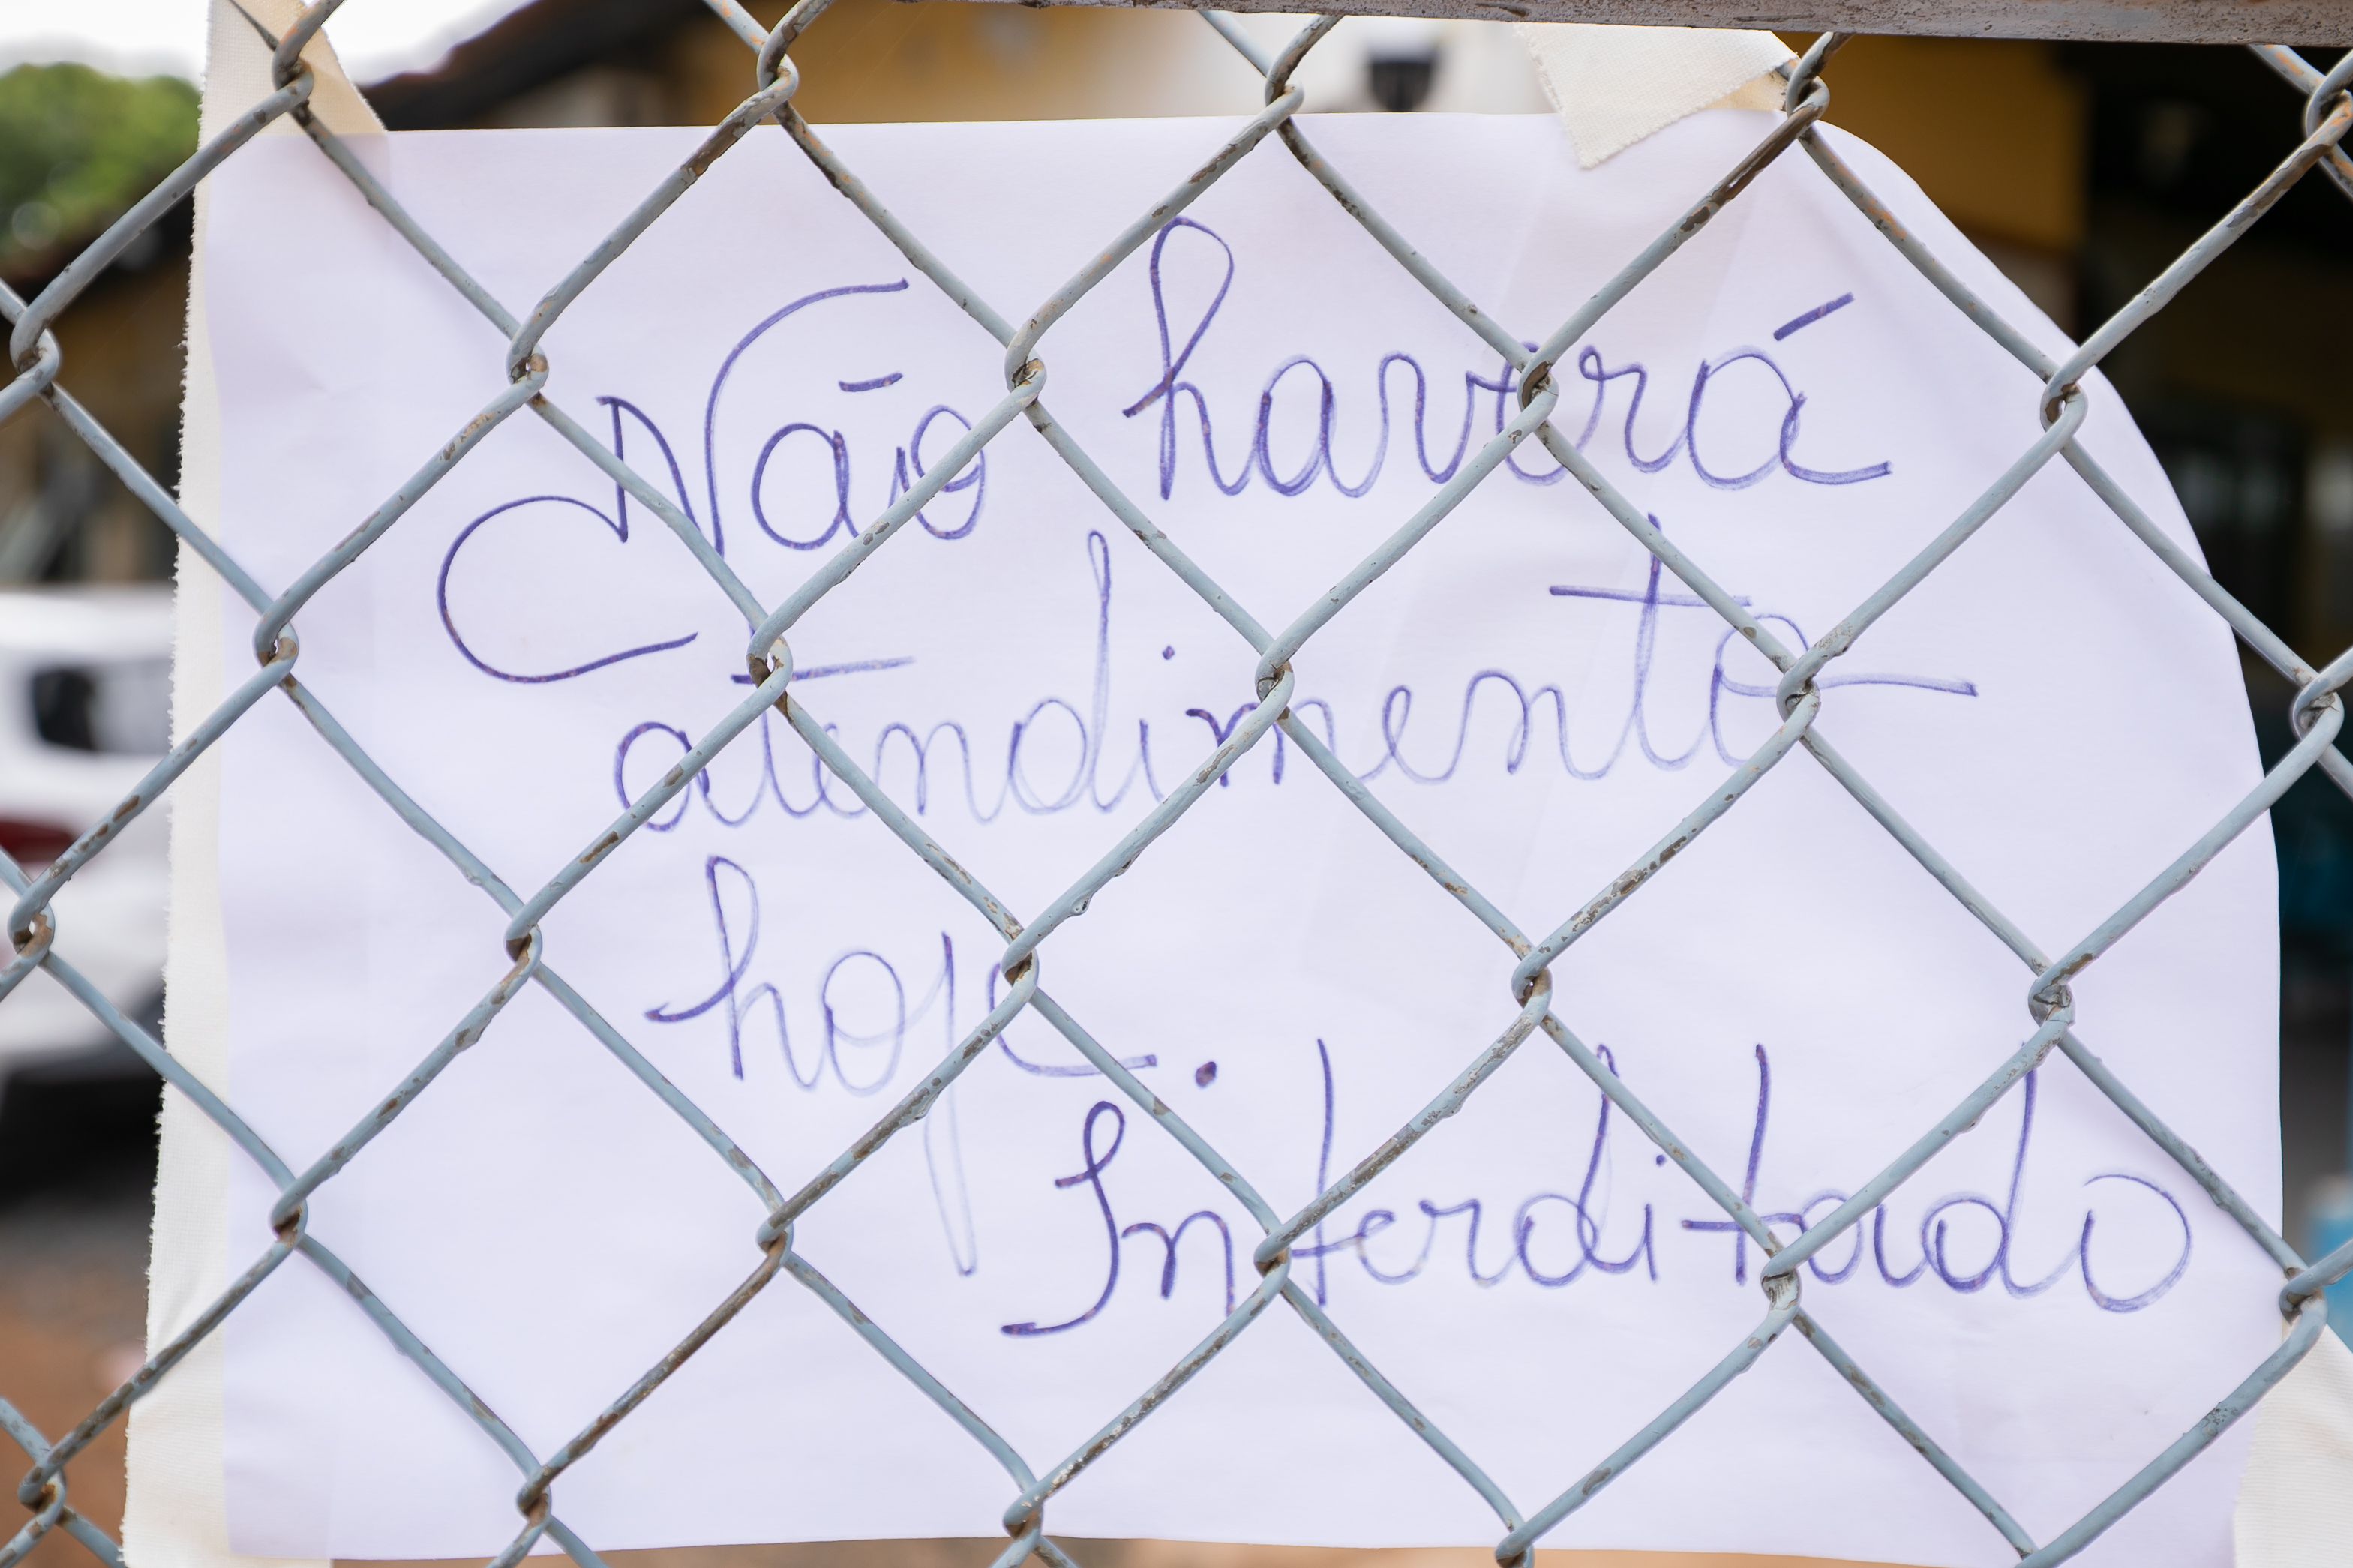 Não haverá
atendimento
hoje.
Interditado